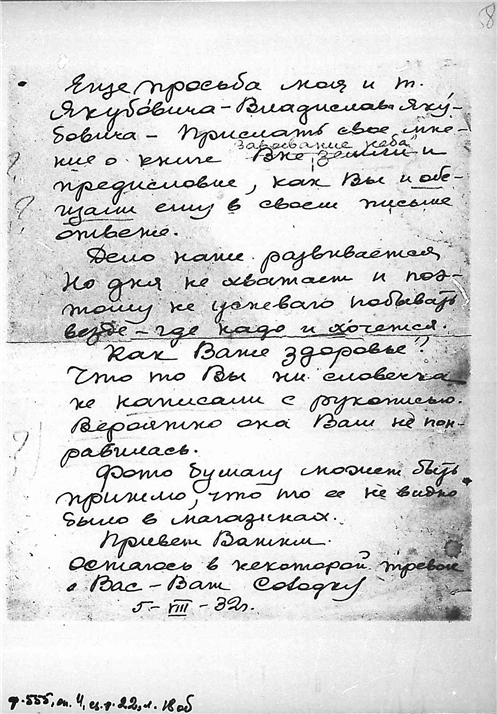 58
Еще просьба моя и т.
Якубовича - Владислава Яку-
бовича - Прислать свое мне-
ние о книге "Завоевание неба" Вне земли и
предисловие, как Вы и обе-
щали ему в своем письме
ответе.
Дело наше развивается
Но дня не хватает и поэ-
тому не успеваю побывать
везде - где надо и хочется.
Как Ваше здоровье?
Что то Вы ни словечка
не написали с рукописью.
Вероятно она Вам не пон-
равилась.
Фото бумагу может быть
пришлю, что то ее не видно
было в магазинах.
Привет Вашим.
Остаюсь в некоторой тревоге
о Вас - Ваш
5 - VIII - 32г.
ф. 555, оп. 4, ед. р. 22, л. 18 об